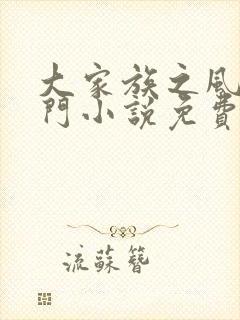 大家族之風
門小說免費
流蘇簪